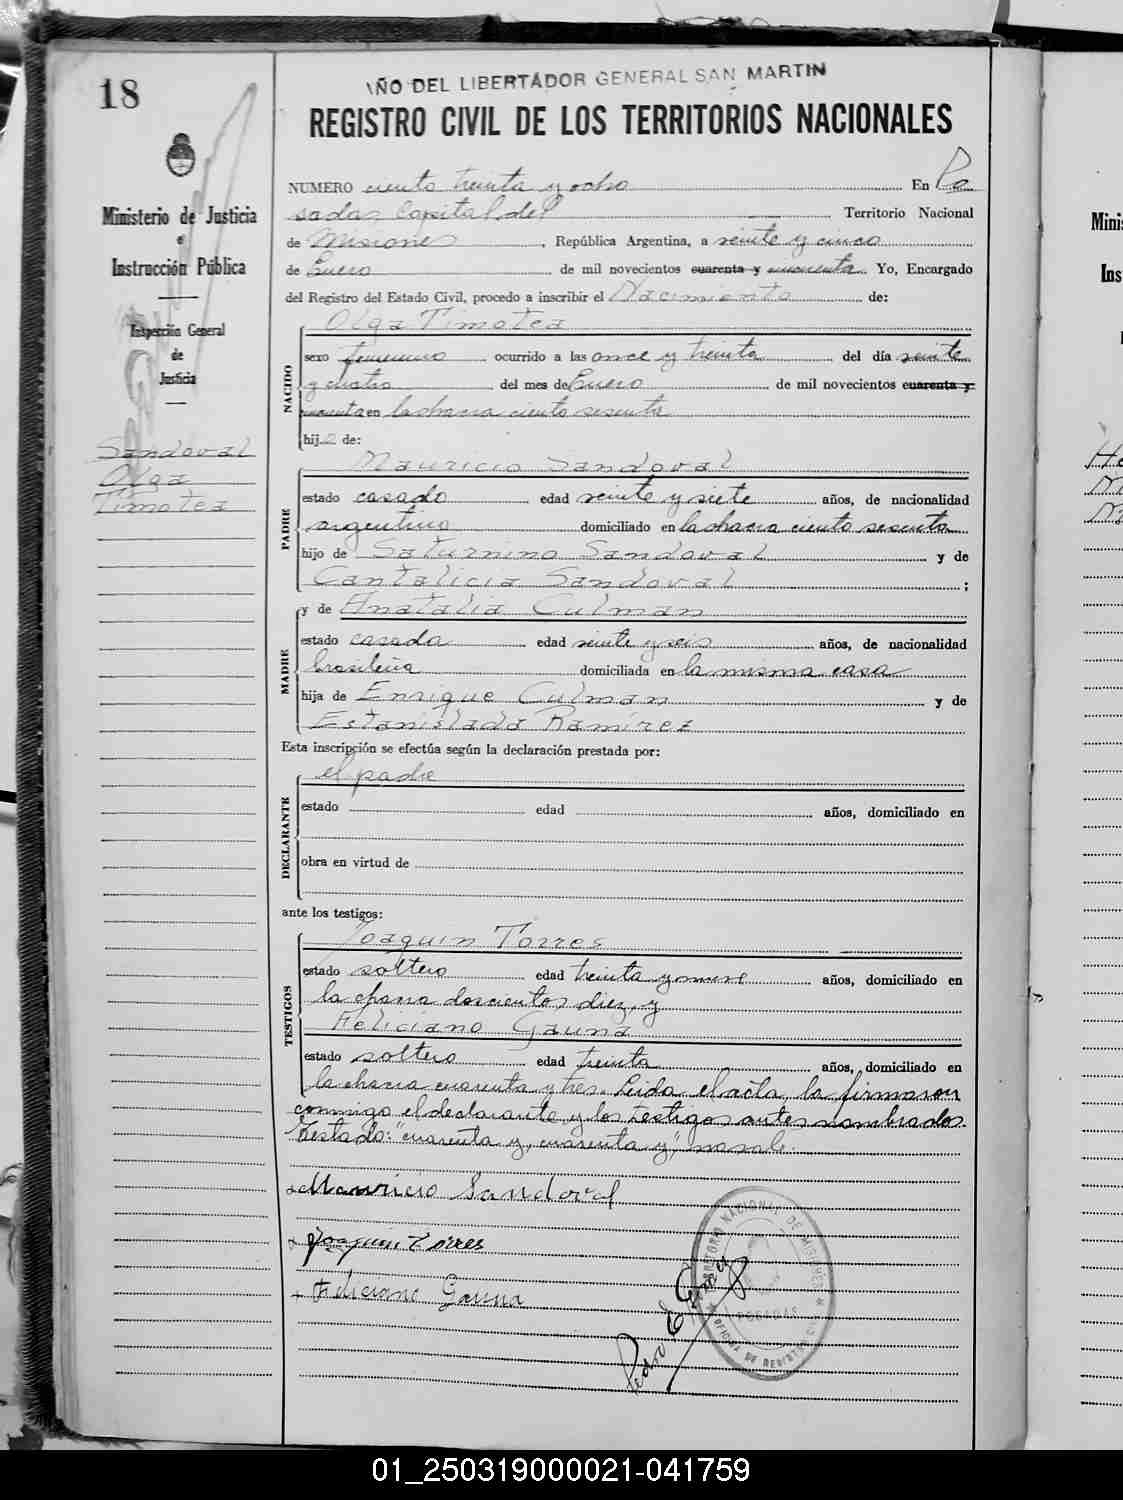 18
AÑO DEL LIBERTADOR GENERAL SAN MARTIN
REGISTRO CIVIL DE LOS TERRITORIOS NACIONALES
Ministerio de Justicia
e
Instrucción Pública
Inspección General
de
Justicia
Sandoval
Olga
Timotea
NUMERO ciento treinta y ocho En Po
sadas Capital del Territorio Nacional
de Misiones, República Argentina, a veinte y cinco
de Enero de mil novecientos cuarenta y cincuenta Yo, Encargado
del Registro del Estado Civil, procedo a inscribir el Nacimiento de:
Olga Timotea
NACIDO
sexo femenino ocurrido a las once y treinta del día veinte
y cuatro del mes de Enero de mil novecientos cuarenta y
cincuenta en la chacra ciento sesenta
hija de:
Mauricio Sandoval
PADRE
estado casado edad veinte y siete años, de nacionalidad
argentino domiciliado en la chacra ciento sesenta
hijo de Saturnino Sandoval y de
Cantalicia Sandoval ;
y de Anatalia Culman
MADRE
estado casada edad veinte y seis años, de nacionalidad
brasileña domiciliada en la misma casa
hija de Enrique Culman y de
Estanislada Ramirez
Esta inscripción se efectúa según la declaración prestada por:
el padre
DECLARANTE
estado edad años, domiciliado en
obra en virtud de
ante los testigos:
Joaquin Torres
TESTIGOS
estado soltero edad treinta y nueve años, domiciliado en
la chacra doscientos diez, y
Feliciano Gauna
estado soltero edad treinta años, domiciliado en
la chacra cuarenta y tres. Leida el acta, la firmaron
conmigo el declarante y los testigos antes nombrados.
Testado: "cuarenta y, cuarenta y," no vale.
Mauricio Sandoval
Joaquin Torres
Feliciano Gauna
Pedro E
TERRITORIO NACIONAL DE MISIONES
POSADAS
OFICINA DE REGISTRO CIVIL
Minis
Ins
01_250319000021-041759